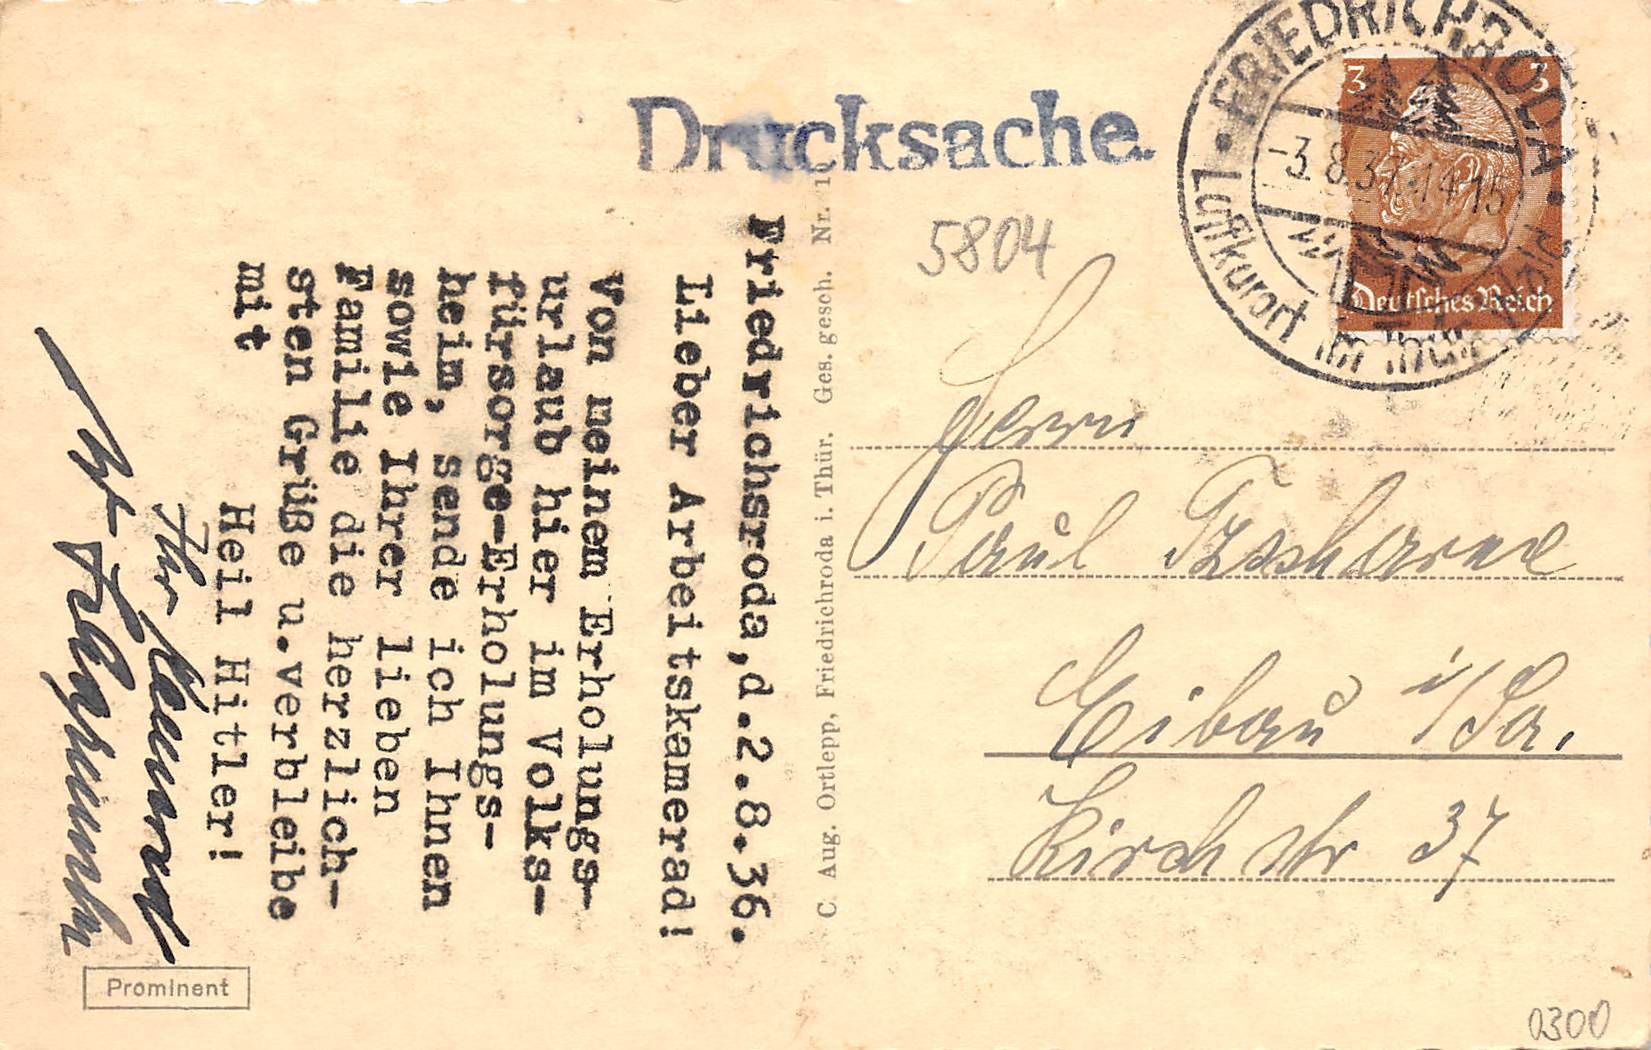 Drucksache.
FRIEDRICHRODA
-3.8.37.-14-15
Luftkurort im Thür.
3 3
Deutsches Reich
5804
Friedrichsroda,d.2.8.36.
Lieber Arbeitskamerad!
Von meinem Erholungs-
urlaub hier im Volks-
fürsorge-Erholungs-
heim, sende ich Ihnen
sowie Ihrer lieben
Familie die herzlich-
sten Grüße u.verbleibe
mit
Heil Hitler!
Ihr
C. Aug. Ortlepp, Friedrichroda i. Thür. Ges. gesch. Nr.
Herrn
Paul Tzscharne
Eibau i/Sa.
Kirchstr 37
Prominent
0300